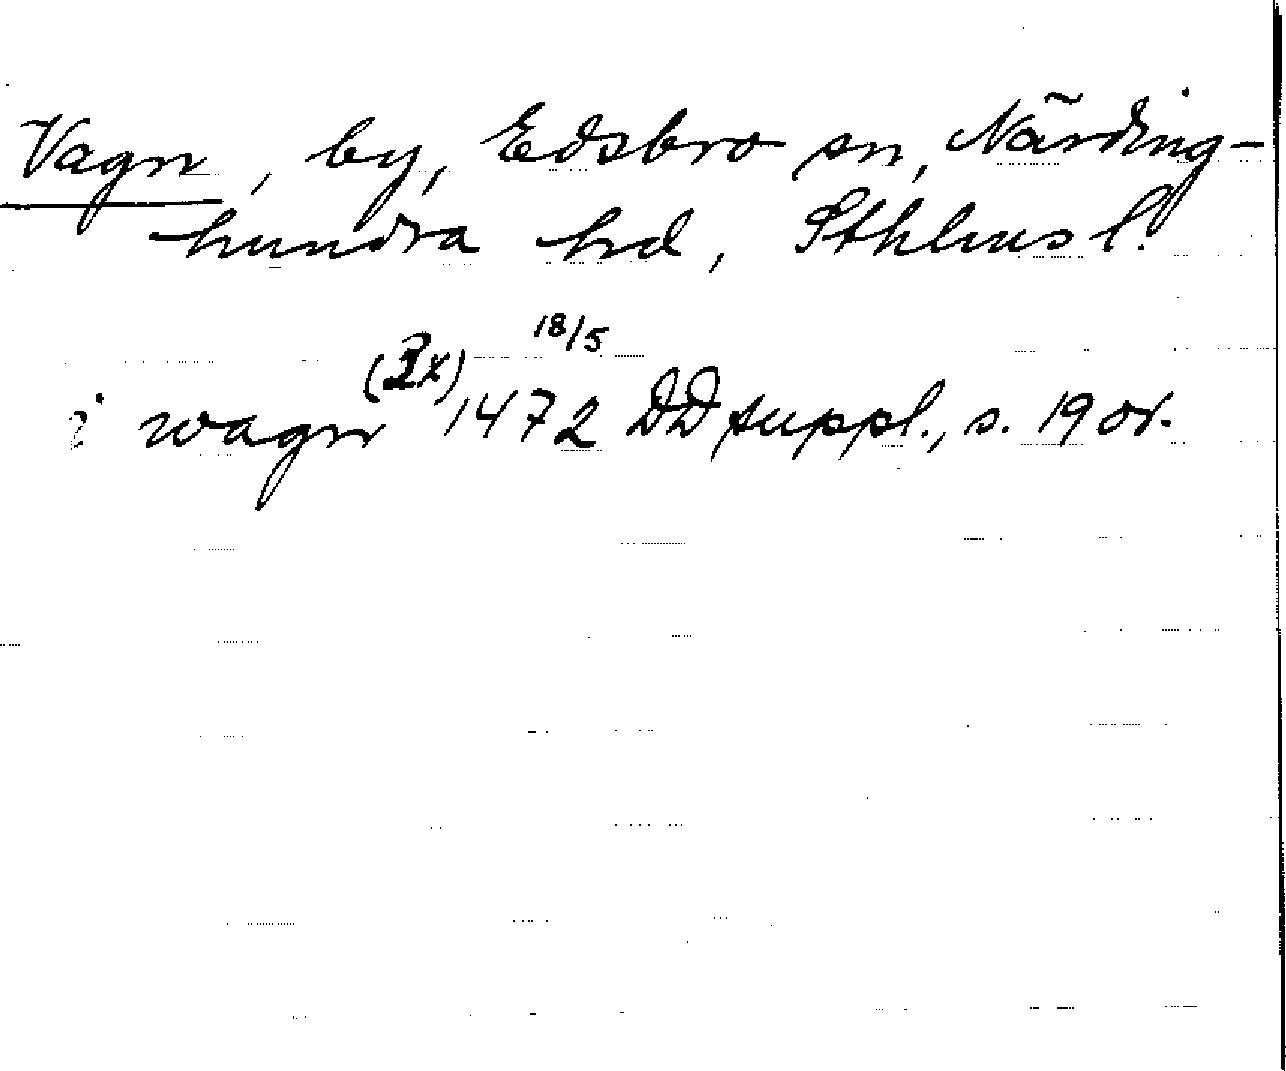 Vagn, by, Edsbro sn, Närding-
hundra hd, Sthlms l.
18/5
i wagn (2x) 1472 DD suppl., s. 19 or.